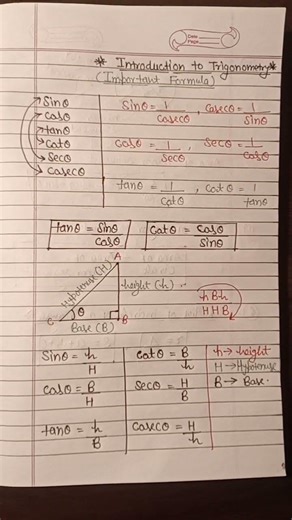 Date
Page
* Introduction to Trigonometry *
(Important Formula)
Sinθ
Cosθ
tanθ
Cotθ
Secθ
Cosecθ
Sinθ = 1/Cosecθ, Cosecθ = 1/Sinθ
Cosθ = 1/Secθ, Secθ = 1/Cosθ
tanθ = 1/Cotθ, Cotθ = 1/tanθ
tanθ = Sinθ/Cosθ
Cotθ = Cosθ/Sinθ
A
Hypotenuse (H)
height (h)
C
θ
B
Base (B)
h B h
H H B
Sinθ = h/H
Cotθ = B/h
h → height
Cosθ = B/H
Secθ = H/B
H → Hypotenuse
B → Base.
tanθ = h/B
Cosecθ = H/h